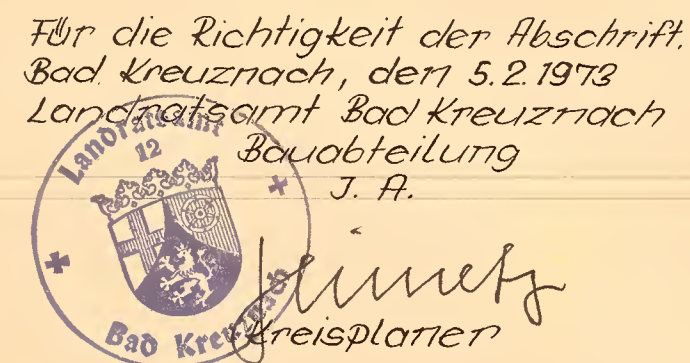 Für die Richtigkeit der Abschrift.
Bad Kreuznach, den 5.2.1973
Landratsamt Bad Kreuznach
Bauabteilung
J. A.
Kreisplaner
Landratsamt
12
Bad Kreuznach